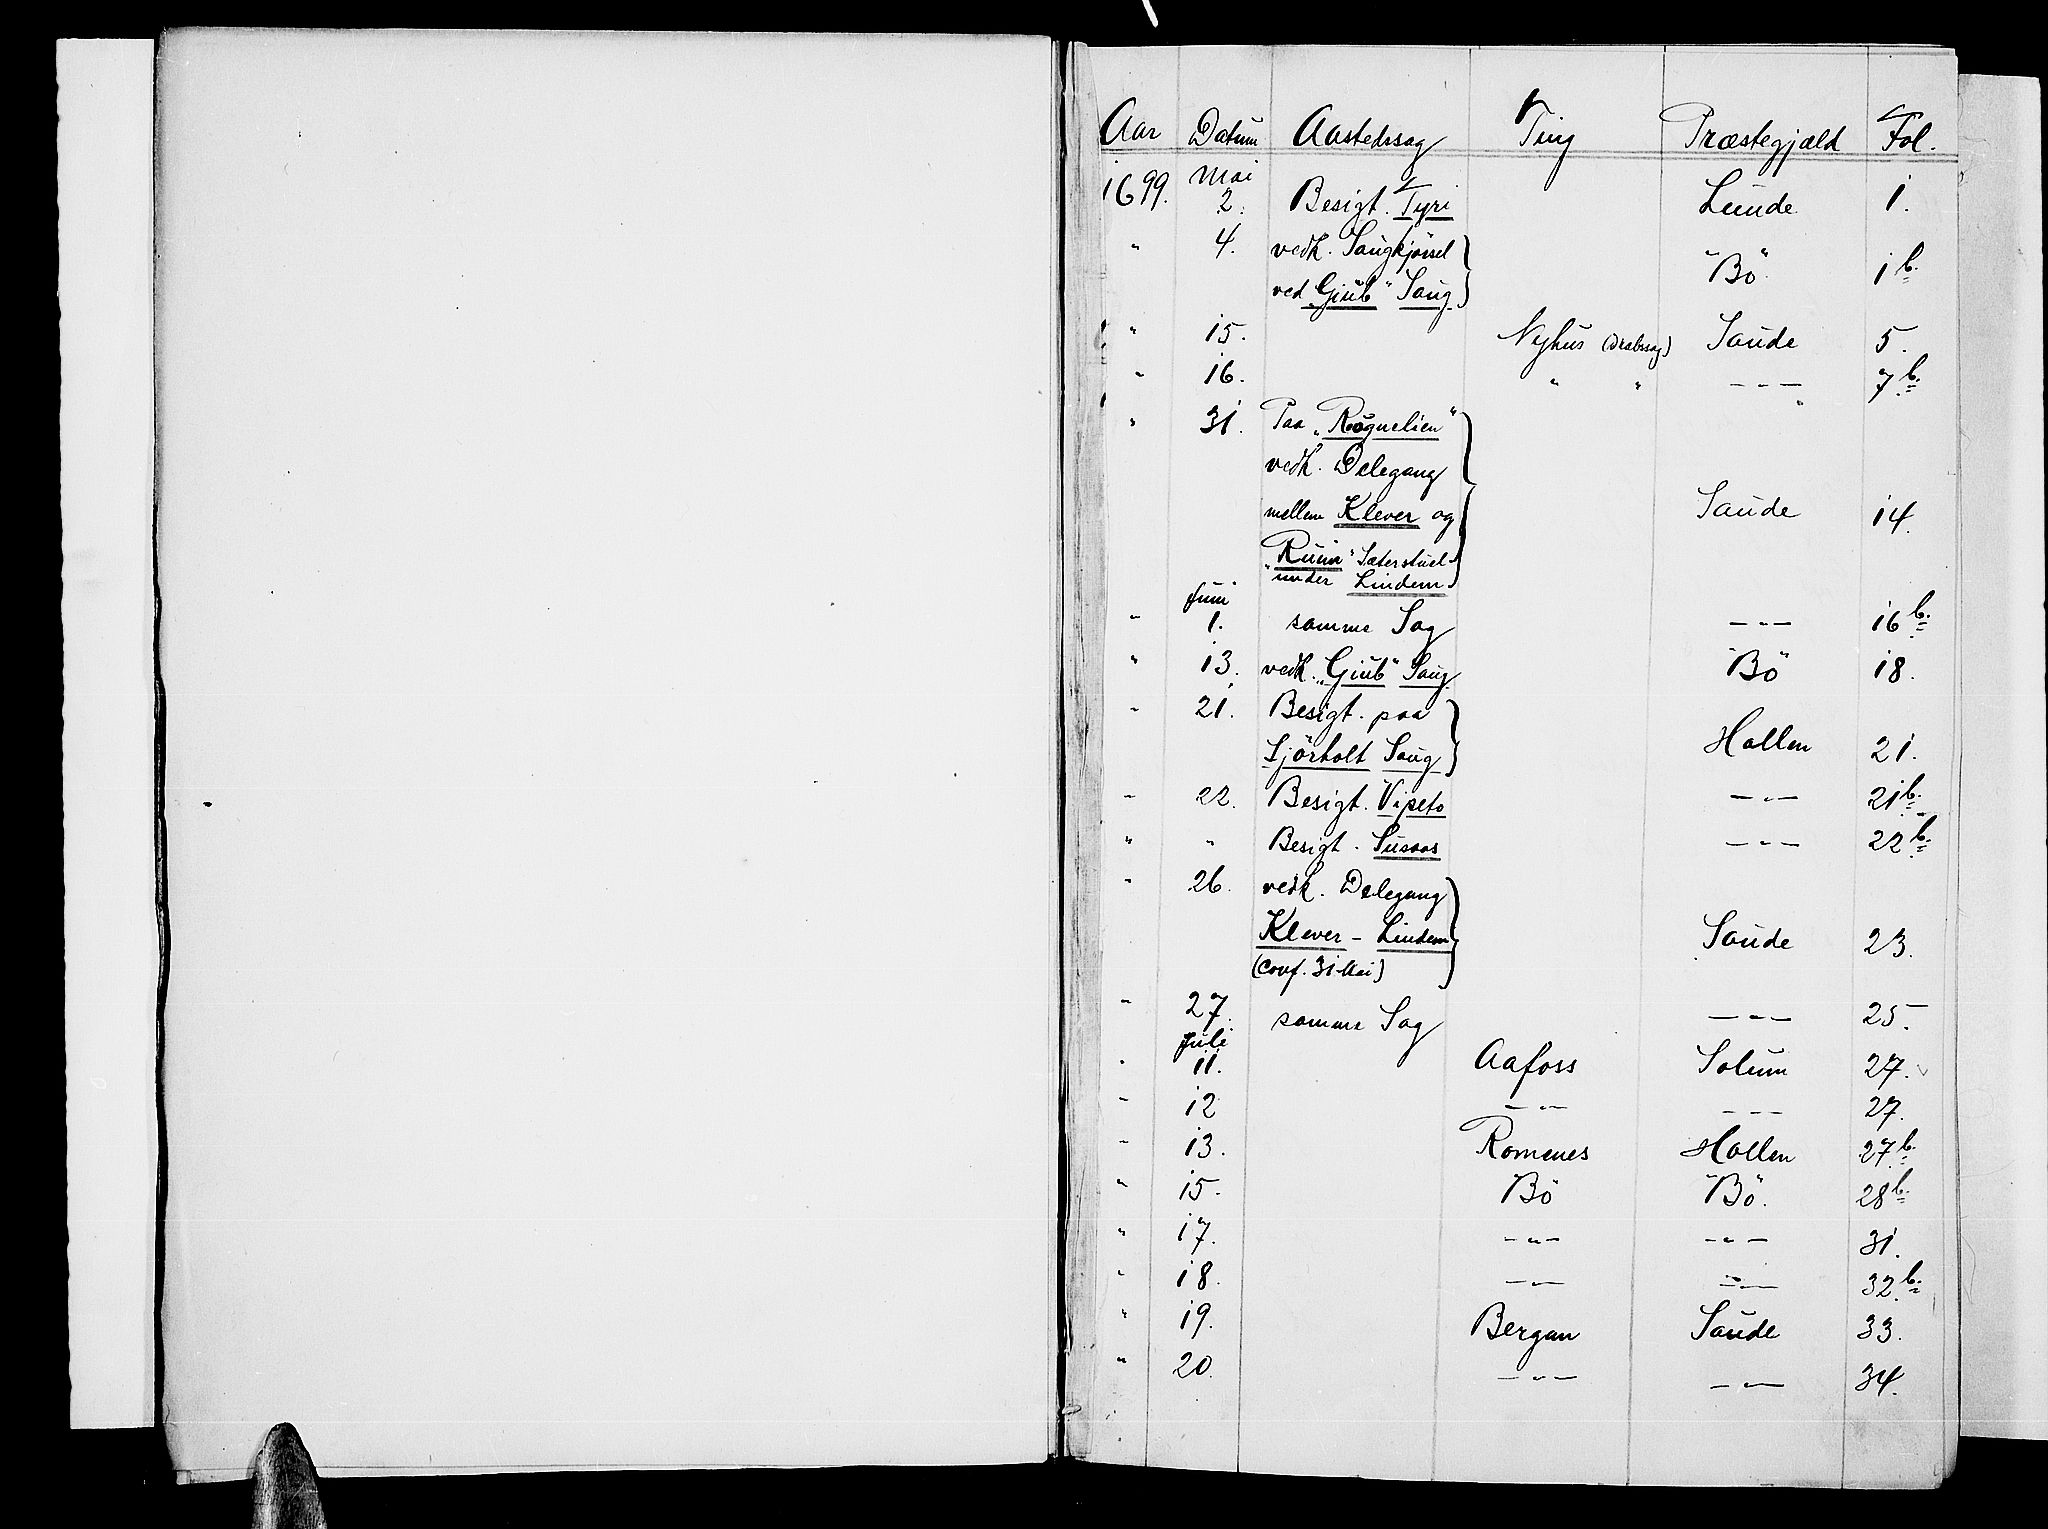 Aar Datum Aastedssag Ting Præstegjæld Fol.
1699. Mai 2. Besigt. Tyri Lunde 1.
" 4. vedk. Saugkjørsel
ved „Giub“ Saug. Bö 1 b.
" 15. Nyhus (Drabssag) Saude 5.
" 16. " " – – – 7 b.
" 31. Paa „Røguelien“
vedk. Delegang
mellem Klever og Saude 14.
„Ruim“ Sæterstuel
under Lindem
Juni
" 1. samme Sag – " – 16 b.
" 13. vedk. „Giub“ Saug. Bö 18.
" 21. Besigt. paa
Sjörholt Saug Hollen 21.
" 22. Besigt. Vipeto – " – 21 b.
" " Besigt. Susaas – " – 22 b.
" 26. vedk. Delegang
Klever – Lindem Saude 23.
(Conf. 31 Mai)
" 27. samme Sag – " – 25.
Juli
" 11. Aafoss Solum 27.
" 12 – " – – – – 27.
" 13. Romenes Hollen 27 b.
" 15. Bö Bö. 28 b.
" 17. – " – – " – 31.
" 18. – " – – " – 32 b.
" 19. Bergan Saude 33.
" 20. – " – – " – 34.